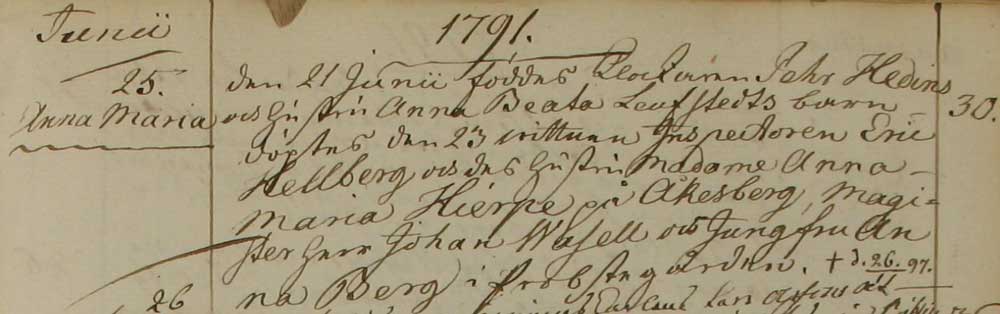 Junii
1791.
25.
Anna Maria
den 21 Junii föddes Klockaren Pehr Hedins
och hustru Anna Beata Leufstedts barn
döptes den 23 wittnen Inspectoren Eric
Hellberg och des hustru Madame Anna
Maria Hierpe på Åkesberg, Magi-
ster Herr Johan Wasell och Jungfru An
na Berg i Probstegården. † d. 26. 97.
30.
26
Lars